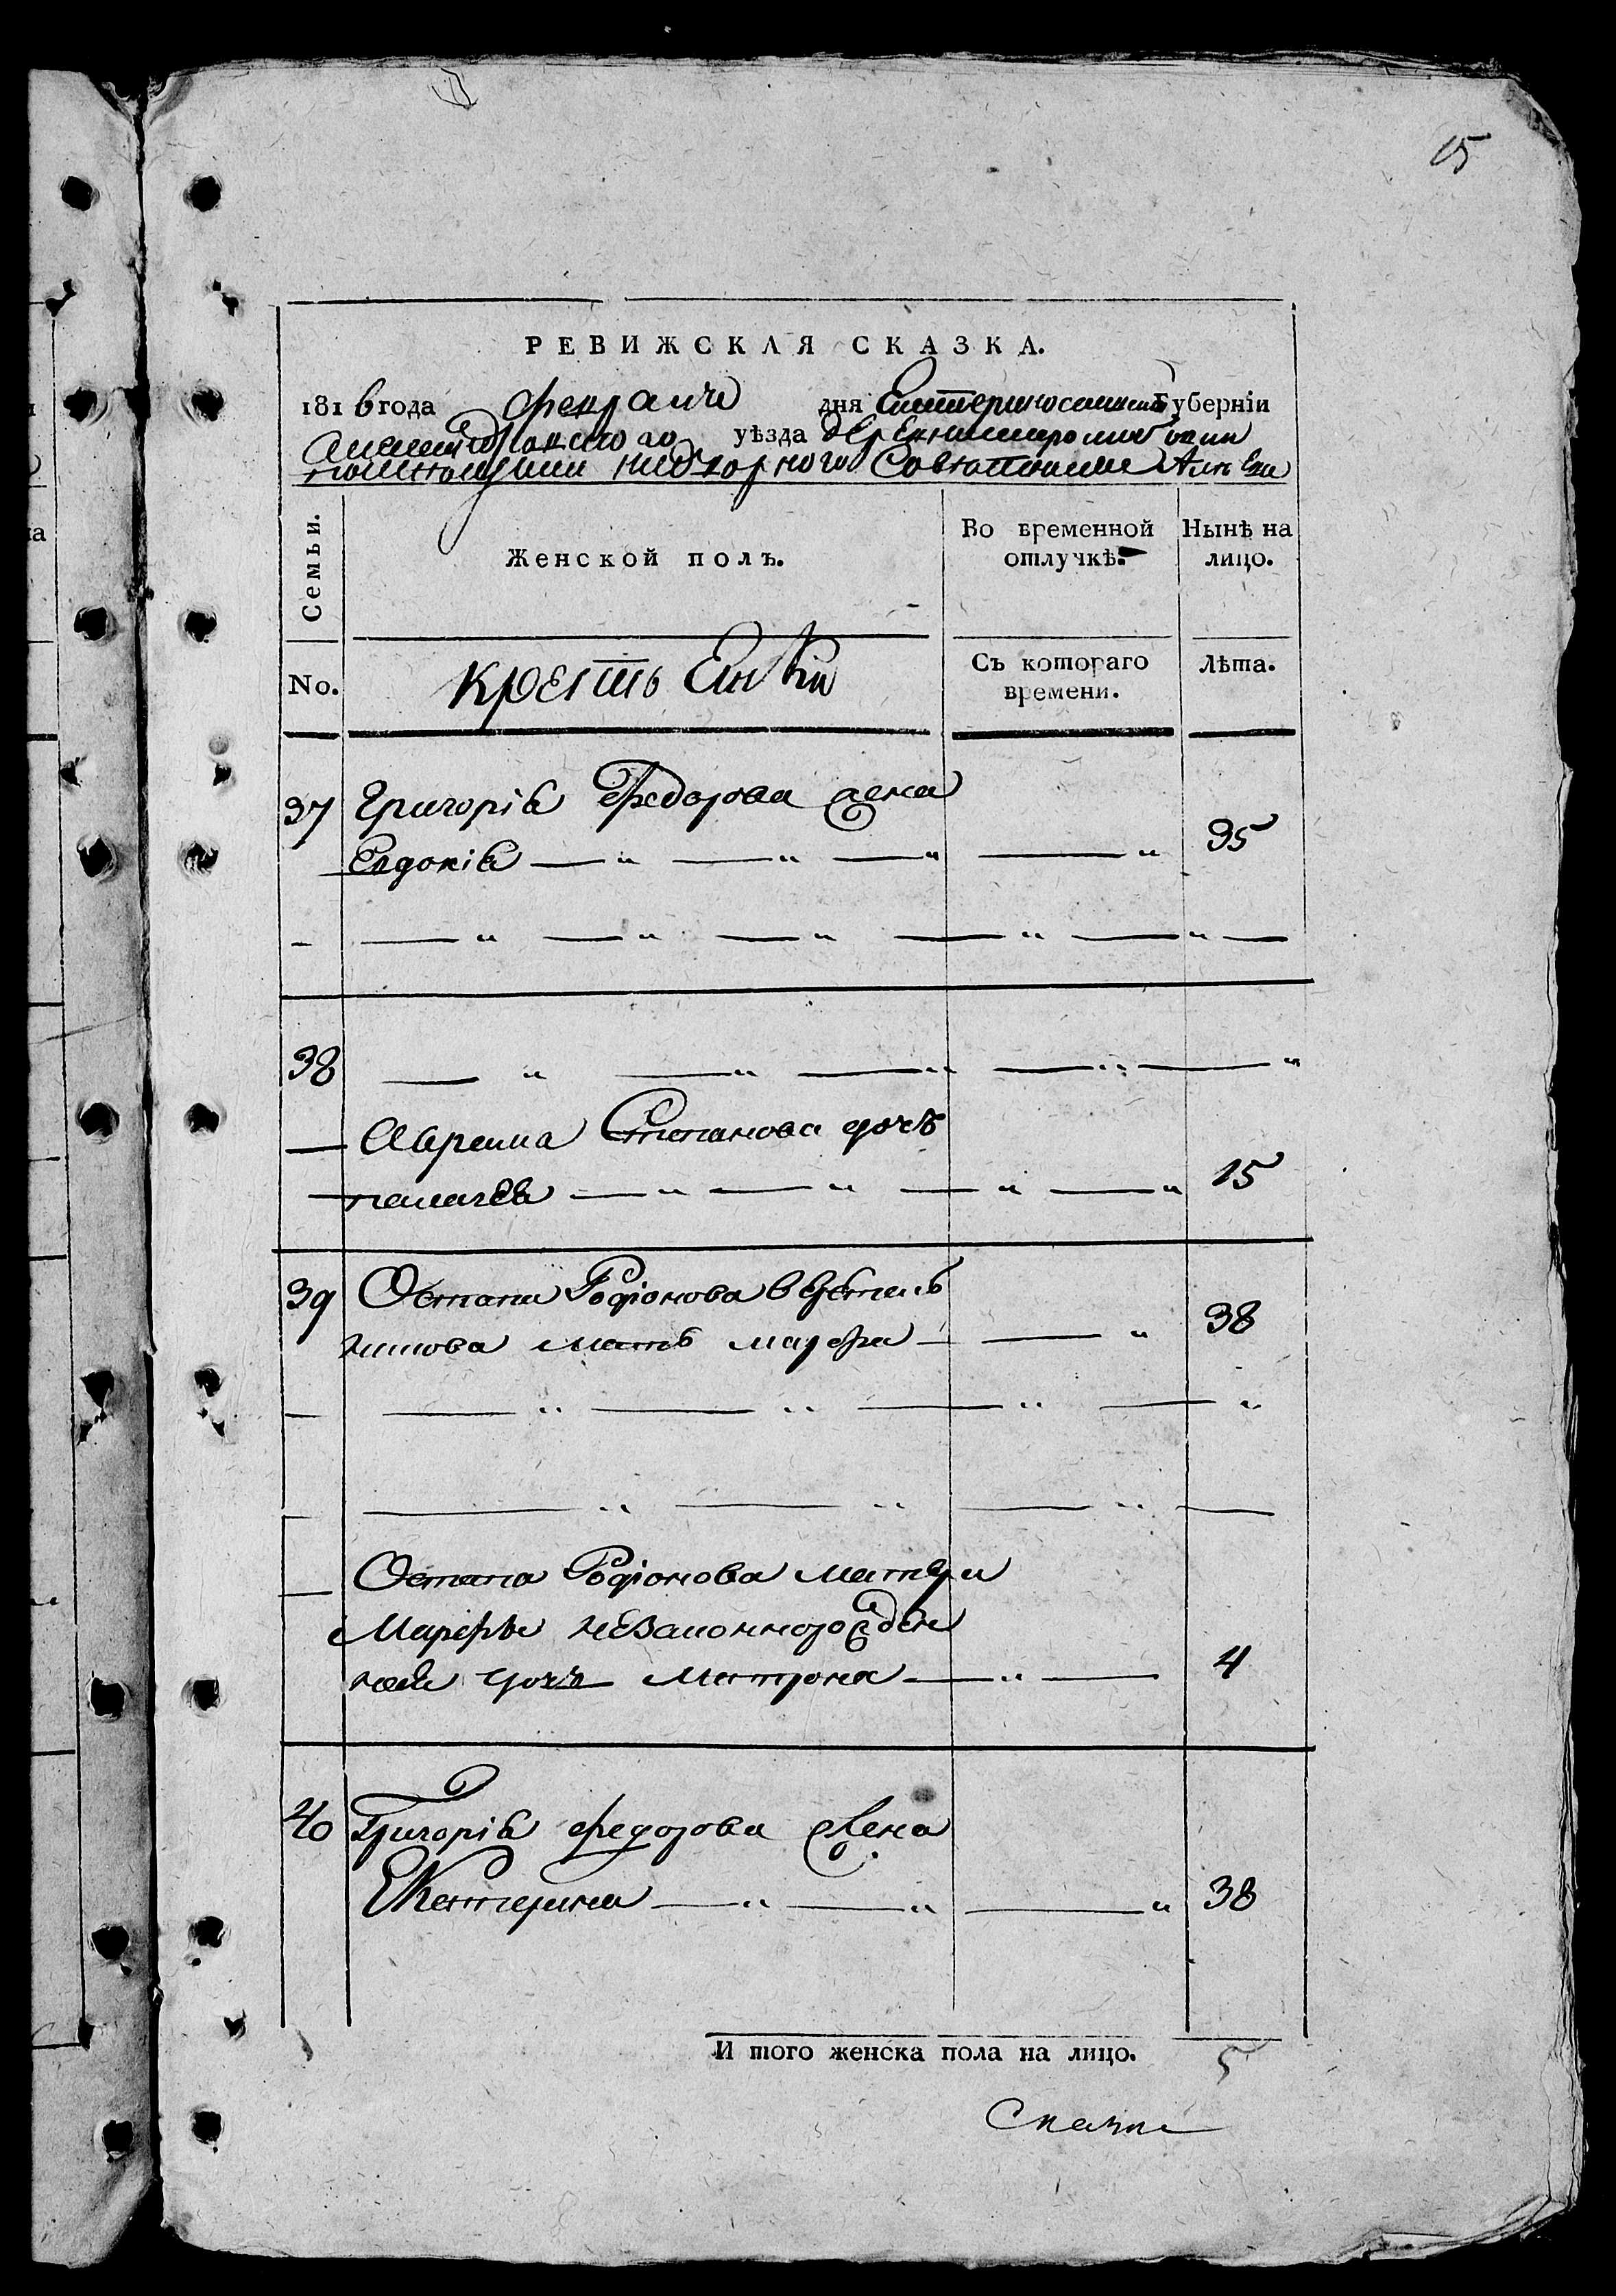 15
РЕВИЖСКАЯ СКАЗКА.
1816 года февраля дня Екатеринославской Губерніи
уѣзда
надворного
Семьи. Женской полъ. Во временной отлучкѣ. Нынѣ на лицо.
No. Крестьянки Съ котораго времени. Лѣта.
37 Григорія Федорова жена
Евдокія — „ — „ — „ — „ 35
— — „ — „ — „ — „ — „ —
38 — „ — „ — „ — „ — „
— Степанова дочь
пелагея — „ — „ — „ — „ 15
39 Остапа Родіонова
мать марфа — — „ 38
— — „ — „ — „ — „
— „ — „ — „ —
— Остапа Родіонова матери
Марфы незаконнорожден
ная дочь Матрона — „ — 4
40 Григорія федорова жена
Екатерина — „ — „ — „ 38
И того женска пола на лицо. 5